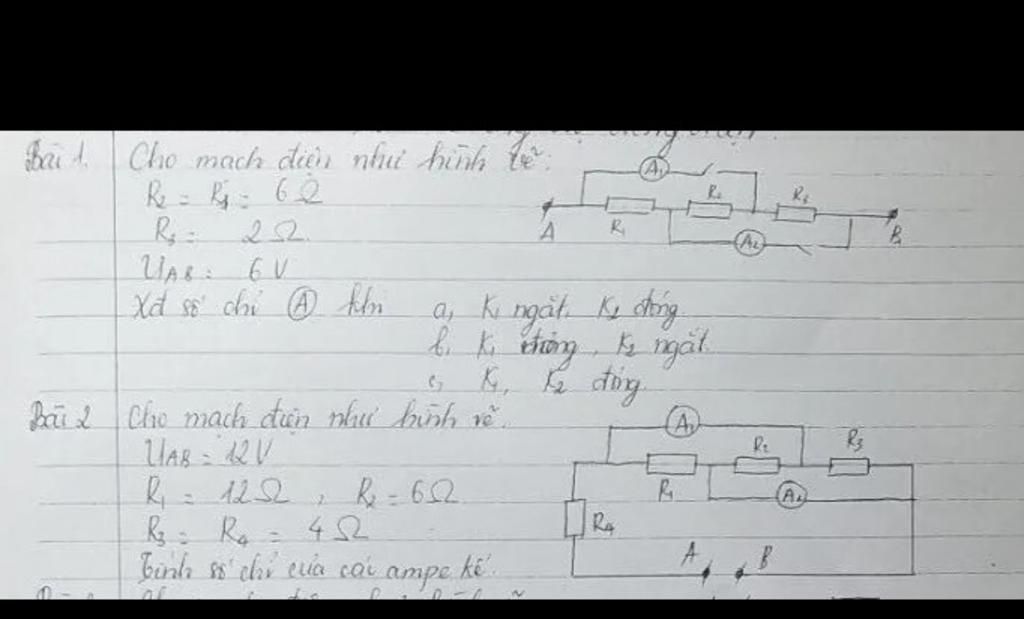 Bài 1. Cho mạch điện như hình vẽ:
R₂ = R₁ = 6Ω
R₃ = 2Ω
U_AB = 6V
Xđ số chỉ Ⓐ khi a, K₁ ngắt, K₂ đóng.
b, K₁ đóng, K₂ ngắt.
c, K₁, K₂ đóng.
A₁
R₂ R₃
A R₁ B
A₂
Bài 2 Cho mạch điện như hình vẽ.
U_AB = 12V
R₁ = 12Ω, R₂ = 6Ω
R₃ = R₄ = 4Ω
Tính số chỉ của các ampe kế.
A₁
R₂ R₃
R₁ A₂
R₄
A B